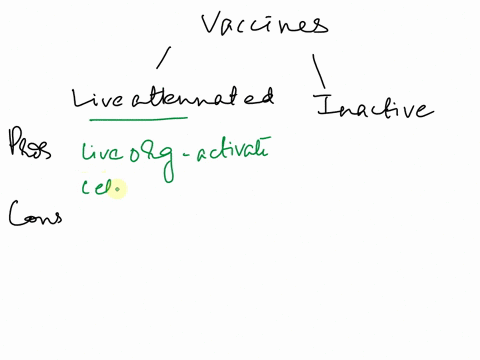 Vaccines
Live attennated Inactive
Pros Live org - activate
cel.
Cons